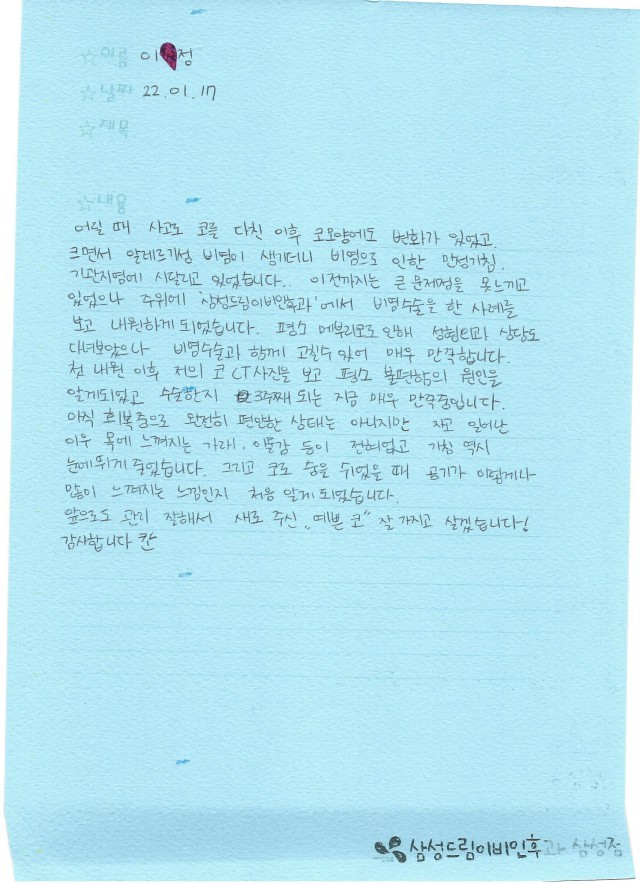 ☆이름 이 정
☆날짜 22.01.17
☆제목
☆내용
어릴 때 사고로 코를 다친 이후 코모양에도 변화가 있었고
크면서 알레르기성 비염이 생기더니 비염으로 인한 만성기침,
기관지염에 시달리고 있었습니다. 이전까지는 큰 문제점을 못느끼고
있었으나 주위에 '삼성드림이비인후과'에서 비염수술을 한 사례를
보고 내원하게 되었습니다. 평소 메부리코로 인해 성형 상담도
다녀보았으나 비염수술과 함께 고칠수 있어 매우 만족합니다.
첫 내원 이후 저의 코 CT사진을 보고 평소 불편함의 원인을
알게되었고 수술한지 3주째 되는 지금 매우 만족중입니다.
아직 회복중으로 완전히 편안한 상태는 아니지만 자고 일어난
이후 목에 느껴지는 가래, 이물감 등이 전혀없고 기침 역시
눈에띄게 줄었습니다. 그리고 코로 숨을 쉬었을 때 공기가 이렇게나
많이 느껴지는 느낌인지 처음 알게 되었습니다.
앞으로도 관리 잘해서 새로 주신 "예쁜 코" 잘 가지고 살겠습니다!
감사합니다
삼성드림이비인후과 삼성점